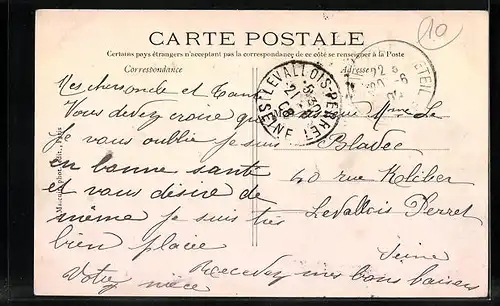 10
CARTE POSTALE
Certains pays étrangers n'acceptant pas la correspondance de ce côté se renseigner à la Poste
Correspondance
Adresse
LEVALLOIS-PERRET
SEINE
5 30
21
08
Mes cher oncle et Tante
Vous devez croire que
je vous oublie je suis
en bonne santé
et vous désire de
même je suis très
bien placée
Recevez mes bons baisers
Votre nièce
Mme Le
Bladec
40 rue Kléber
Levallois Perret
Seine
phot. édit., Paris